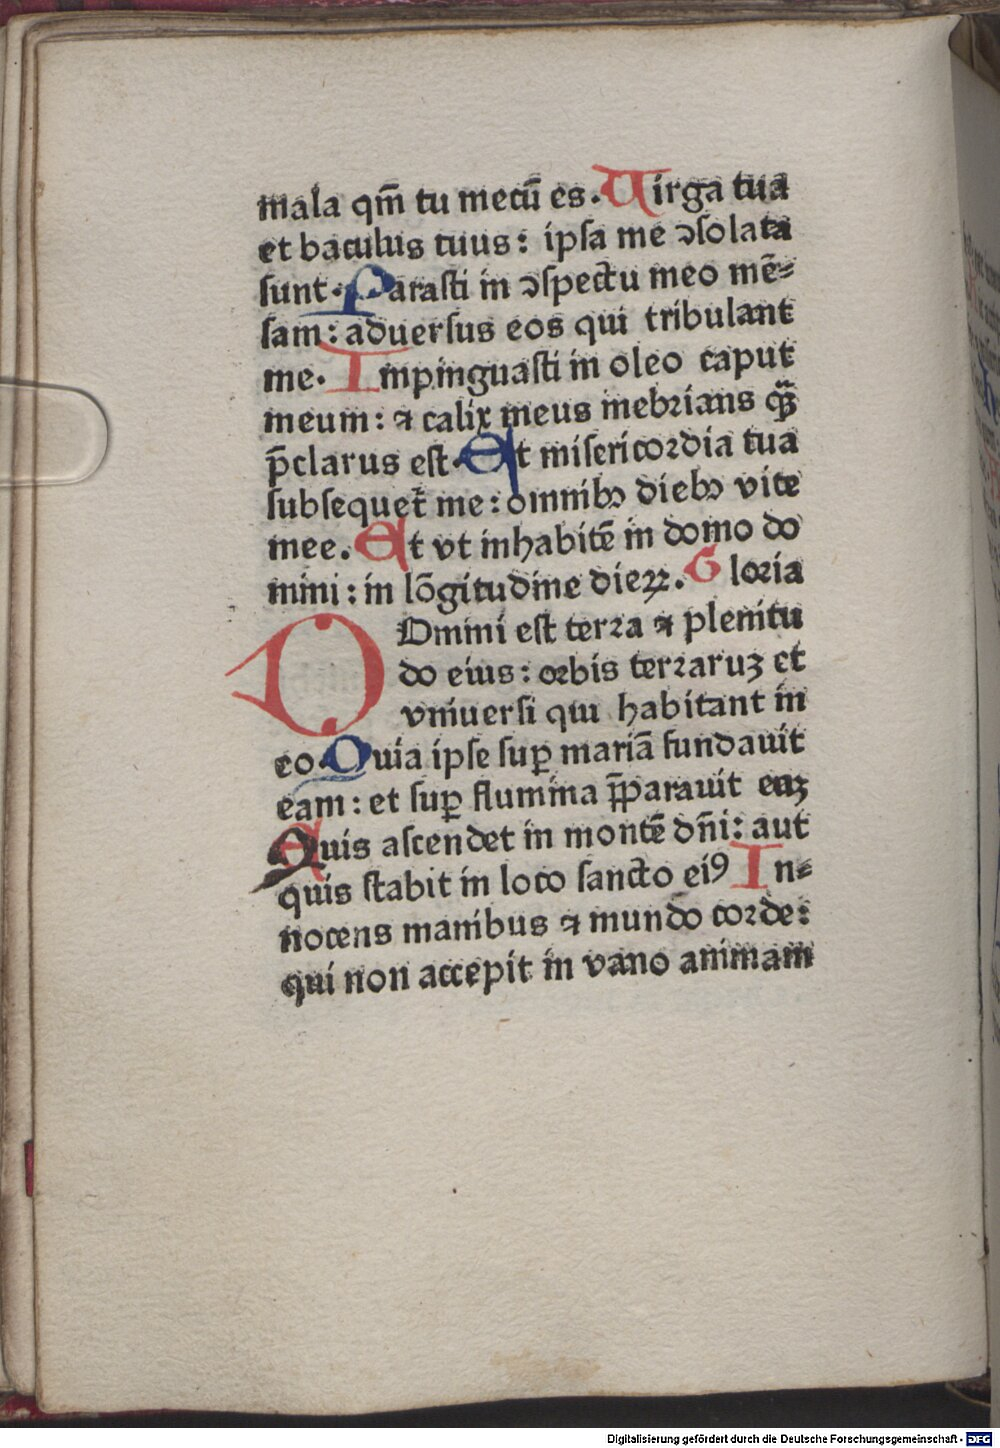 mala qm̄ tu mecū es. Uirga tua
et baculus tuus: ipſa me ↄſolata
ſunt. Paraſti in ↄſpectu meo mē⸗
ſam: aduerſus eos qui tribulant
me. Impinguaſti in oleo caput
meum: ⁊ calix meus inebꝛians q̄ꝫ
p̄clarus eſt. Et miſericoꝛdia tua
subſequet̄ me: omnibꝰ diebꝰ vite
mee. Et vt inhabitē in domo do
mini: in lōgitudine dieꝝ. Gloꝛia
DOmini eſt terꝛa ⁊ plenitu
do eius: oꝛbis terꝛaruꝫ et
vniuerſi qui habitant in
eo. Quia ipſe ſuꝑ mariā fundauit
eam: et ſuꝑ flumina p̄parauit eaꝫ
Quis aſcendet in montē dn̄i: aut
quis ſtabit in loco ſancto eiꝰ In⸗
nocens manibus ⁊ mundo coꝛde:
qui non accepit in vano animam
Digitalisierung gefördert durch die Deutsche Forschungsgemeinschaft - DFG